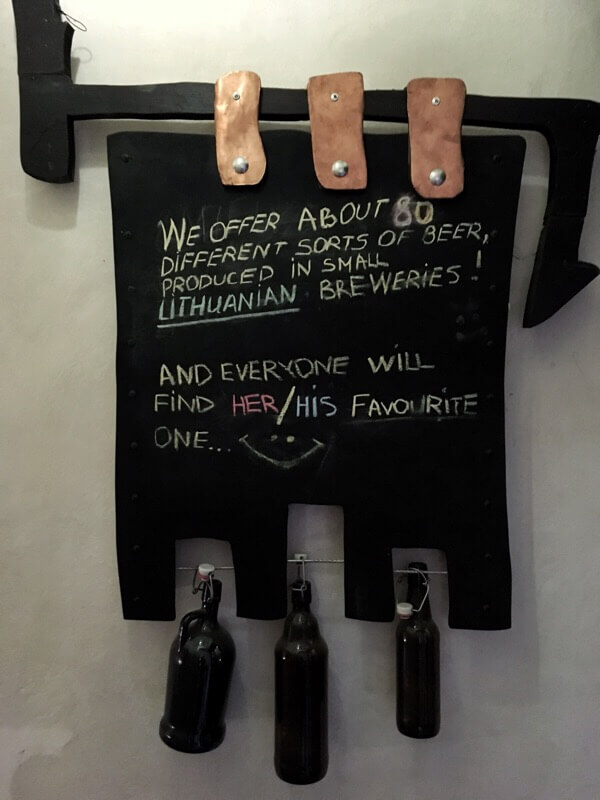 WE OFFER ABOUT 80
DIFFERENT SORTS OF BEER,
PRODUCED IN SMALL
LITHUANIAN BREWERIES!
AND EVERYONE WILL
FIND HER/HIS FAVOURITE
ONE...